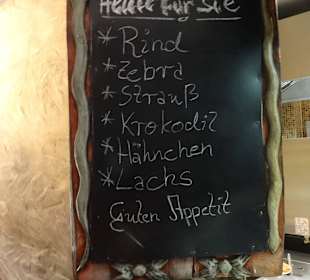 Heute für Sie
* Rind
* Zebra
* Strauß
* Krokodil
* Hähnchen
* Lachs
Guten Appetit